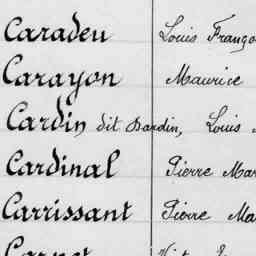 Caradeu Louis Franço
Carayon Maurice
Cardin dit Dardin, Louis
Cardinal Pierre Mar
Carrissant Pierre Ma